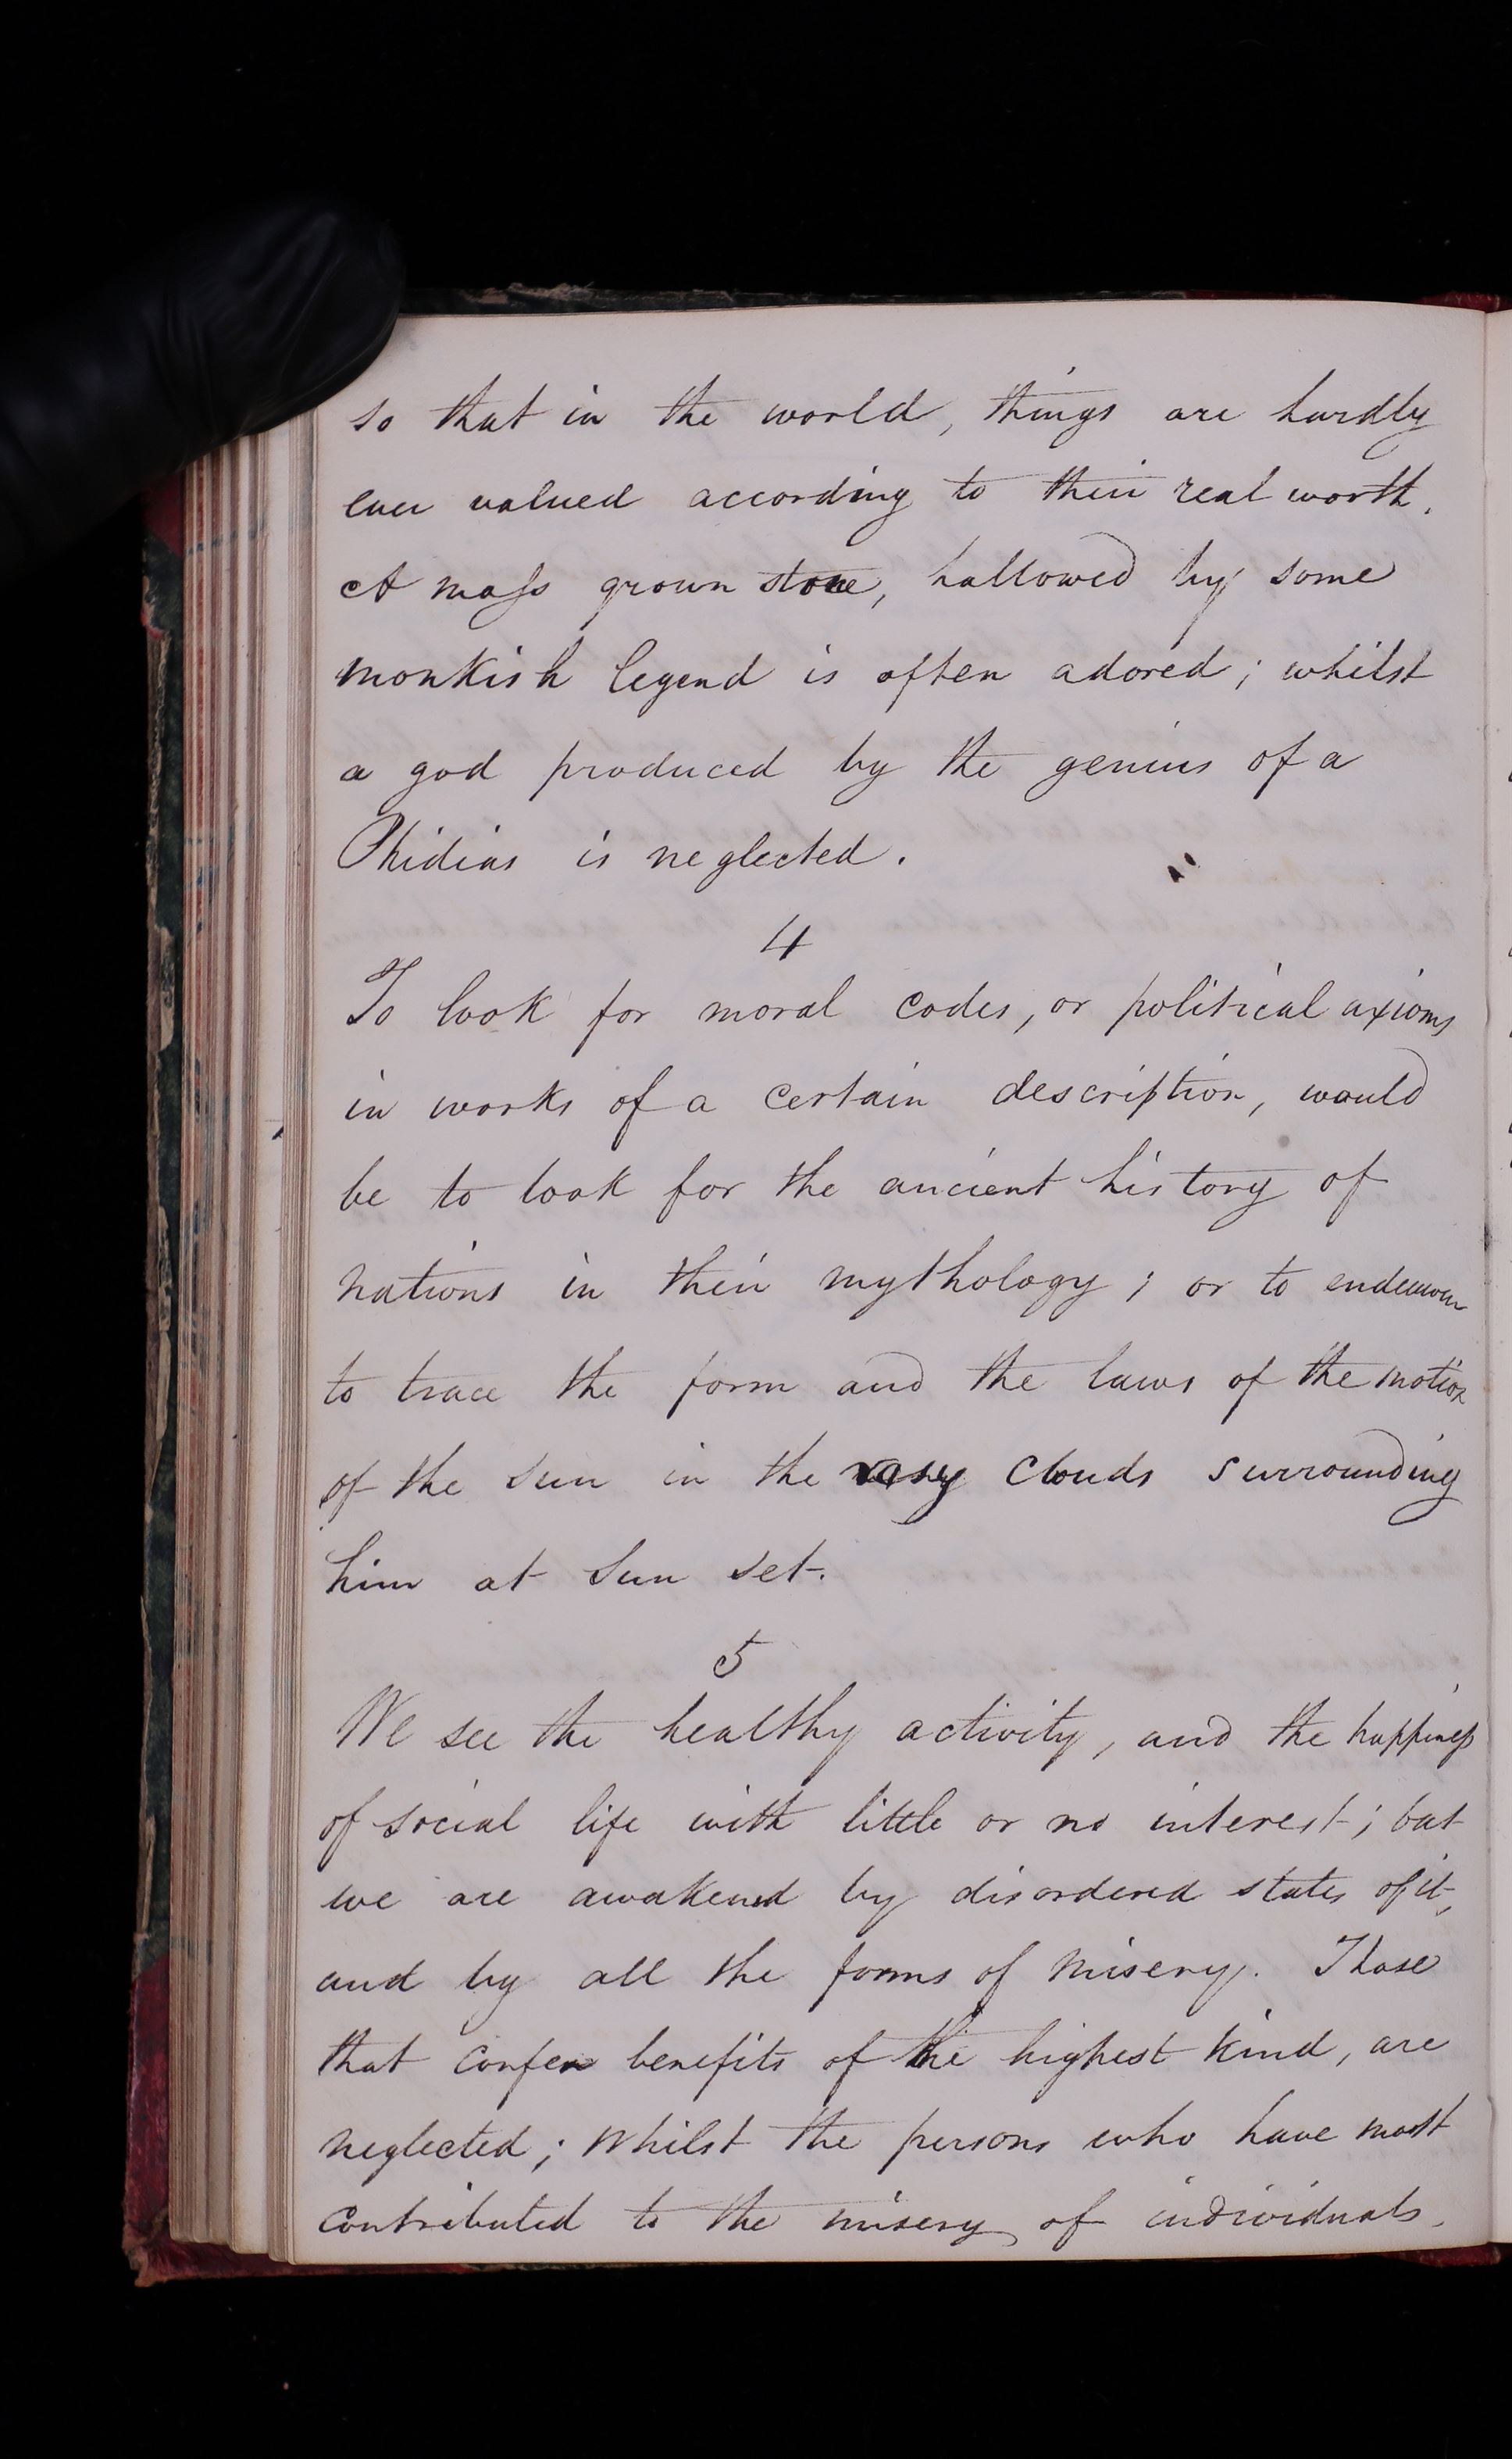 so that in the world, things are hardly
ever valued according to their real worth.
A moss grown stone, hallowed by some
monkish legend is often adored; whilst
a god produced by the genius of a
Phidias is neglected.
4
To look for moral codes, or political axioms
in works of a certain description, would
be to look for the ancient history of
nations in their mythology; or to endeavour
to trace the form and the laws of the motion
of the sun in the rosy clouds surrounding
him at sun set.
5
We see the healthy activity, and the happiness
of social life with little or no interest; but
we are awakened by disordered states of it,
and by all the forms of misery. Those
that confer benefits of the highest kind, are
neglected; whilst the persons who have most
contributed to the misery of individuals,